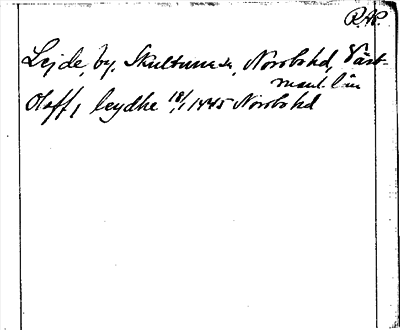 R.AP.
Lejde, by, Skultuna sn, Norrbo hd, Väst-
manl. län
Oloff, leydhe 18/1 1445 Norrbo hd